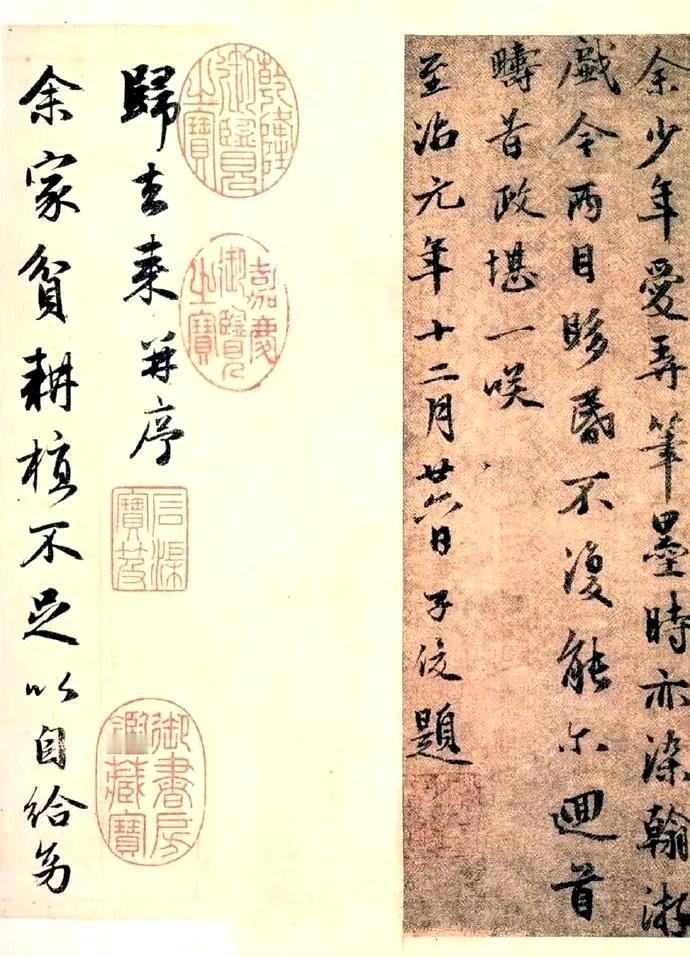 余少年愛弄筆墨時亦染翰游
戲今两目眵昏不復能尒迴首
疇昔政堪一咲
至治元年十二月廿六日子俊題
乾隆御覽之寶
嘉慶御覽之寶
歸去来并序
石渠寶笈
御書房鑑藏寶
余家貧耕植不足以自給幼